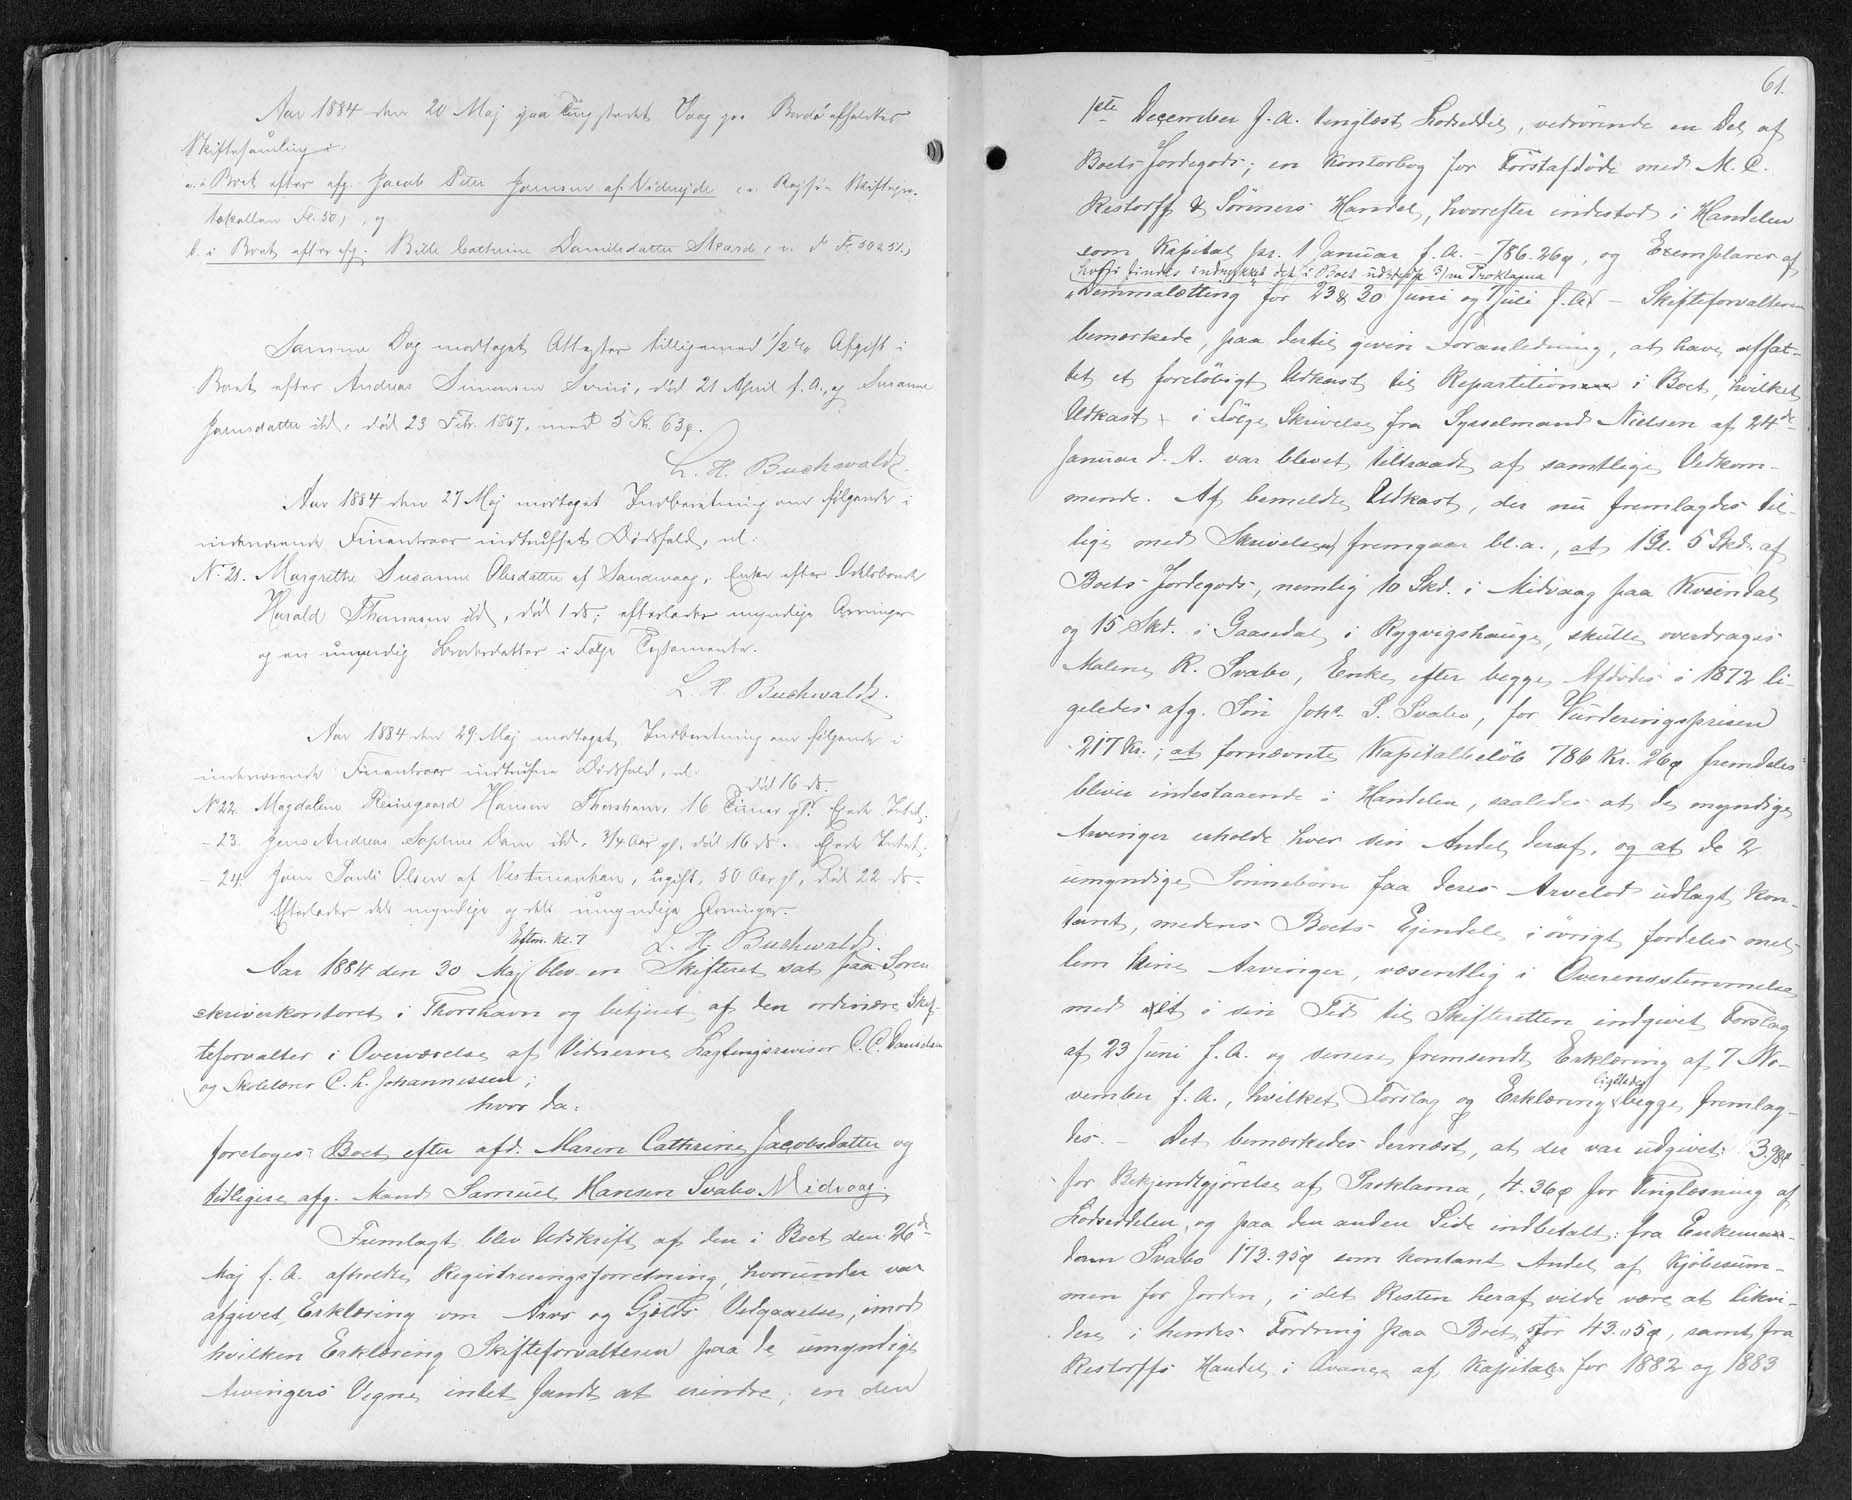 Aar 1884 den 20 Maj paa Tingstedet Vaag paa Bordö afholdtes
Skiftesamling i:
a. i Boet efter afg. Jacob Peter Joensen af Viderejde
Fol. 50, og
b. i Boet efter afg. Bille Cathrine Danielsdatter Skaard,
Samme Dag modtaget Attester tilligemed 1/2 % Afgift i
Boet efter Andreas Simonsen Svinö, död 21 April f. A., og Susanne
Joensdatter ibd. död 23 Febr. 1867, med 5 Kr. 63ø.
L. H. Buchwaldt.
Aar 1884 den 27 Maj modtaget Indberetning om følgende i
indeværende Finantsaar indtruffet Dödsfald, nl:
No. 21. Margrethe Susanne Olesdatter af Sandevaag, Enke efter Odelsbonde
Harald Thomasen ibd, död 1 ds; efterlader myndige Arvinger
og en umyndig Broderdatter i Følge Testamente.
L. H. Buchwaldt.
Aar 1884 den 29 Maj modtaget Indberetning om følgende i
indeværende Finantsaar indtrufne Dödsfald, nl:
död 16 ds.
No 22. Magdalene Hansen Thorshavn, 16 Timer gl. Ejede Intet.
- 23. Jens Andreas Sophus Dam ibd. 3/4 Aar gl. död 16 ds. Ejede Intet.
- 24. Joen Pauli Olsen af Vestmanhavn, ugift, 50 Aar gl, död 22 ds.
Efterlader dels myndige og dels umyndige Arvinger.
L. H. Buchwaldt.
Eftm. Kl. 7
Aar 1884 den 30 Maj blev en Skifteret sat paa Soren
skriverkontoret i Thorshavn og betjent af den ordinære Skif-
teforvalter i Overværelse af Vidnerne Lagtingsrevisor C. C. Danielsen
og Skolelærer C. L. Johannessen;
hvor da:
foretoges: Boet efter afd. Maren Cathrine Jacobsdatter og
tidligere afg. Mand Samuel Hansen Svabo Midvaag.
Fremlagt blev Udskrift af den i Boet den 26de
Maj f. A. afholdte Registreringsforretning, hvorunder var
afgivet Erklæring om Arvs og Gjælds Vedgaaelse, imod
hvilken Erklæring Skifteforvalteren paa de umyndige
Arvingers Vegne intet fandt at erindre; en den
61.
1ste December f. A. tinglæst Lodseddel, vedrörende en Del af
Boets Jordegods; en Kontorbog for Förstafdöde med M. C.
Restorff & Sönners Handel, hvorefter indestod i Handelen
som Kapital pr. 1 Januar f. A. - 786.26ø, og Exemplarer af
hvori findes indrykket det i Boet udstedte 3/m Proklama
"Dimmalætting" for 23 & 30 Juni og 7 Juli f. A. - Skifteforvalteren
bemærkede, paa dertil given Foranledning, at have affat-
tet et foreløbigt Udkast til Repartition i Boet, hvilket
Udkast i Følge Skrivelse fra Sysselmand Nielsen af 24de
Januar d. A. var blevet tiltraadt af samtlige Vedkom-
mende. Af bemeldte Udkast, der nu fremlagdes til-
lige med Skrivelsen, fremgaar bl. a., at 1 Gl. 5 Skd. af
Boets Jordegods, nemlig 10 Skd. i Midvaag paa Kvendal
og 15 Skd. i Gaasedal i Rygvigshauge, skulle overdrages
Malene K. Svabo, Enke efter begge Afdödes i 1872 li-
geledes afg. Sön Johs. S. Svabo, for Vurderingsprisen
217 Kr.; at fornævnte Kapitalbeløb 786 Kr. 26ø fremdeles
bliver indestaaende i Handelen, saaledes at de myndige
Arvinger erholde hver sin Andel deraf, og at de 2
umyndige Sönnebörn faa deres Arvelod udlagt kon-
tant, medens Boets Ejendele i övrigt fordeles mel-
lem Arvinger, væsentlig i Overensstemmelse
med et i sin Tid til Skifteretten indgivet Forslag
af 23 Juni f. A. og senere fremsendt Erklæring af 7 No-
ligeledes
vember f. A., hvilket Forslag og Erklæring begge fremlag-
des. - Det bemærkedes dernæst, at der var udgivet: 3.98ø
for Bekjendtgjörelse af Proklama, 4.36ø for Tinglæsning af
Lodseddelen, og paa den anden Side indbetalt: fra Enkema-
dam Svabo 173.95ø som kontant Andel af Kjöbesum-
men for Jorden, i det Resten heraf vilde være at likvi-
dere i hendes Fordring paa Boet for 43.05ø, samt fra
Restorffs Handel i Avance af Kapitalen for 1882 og 1883